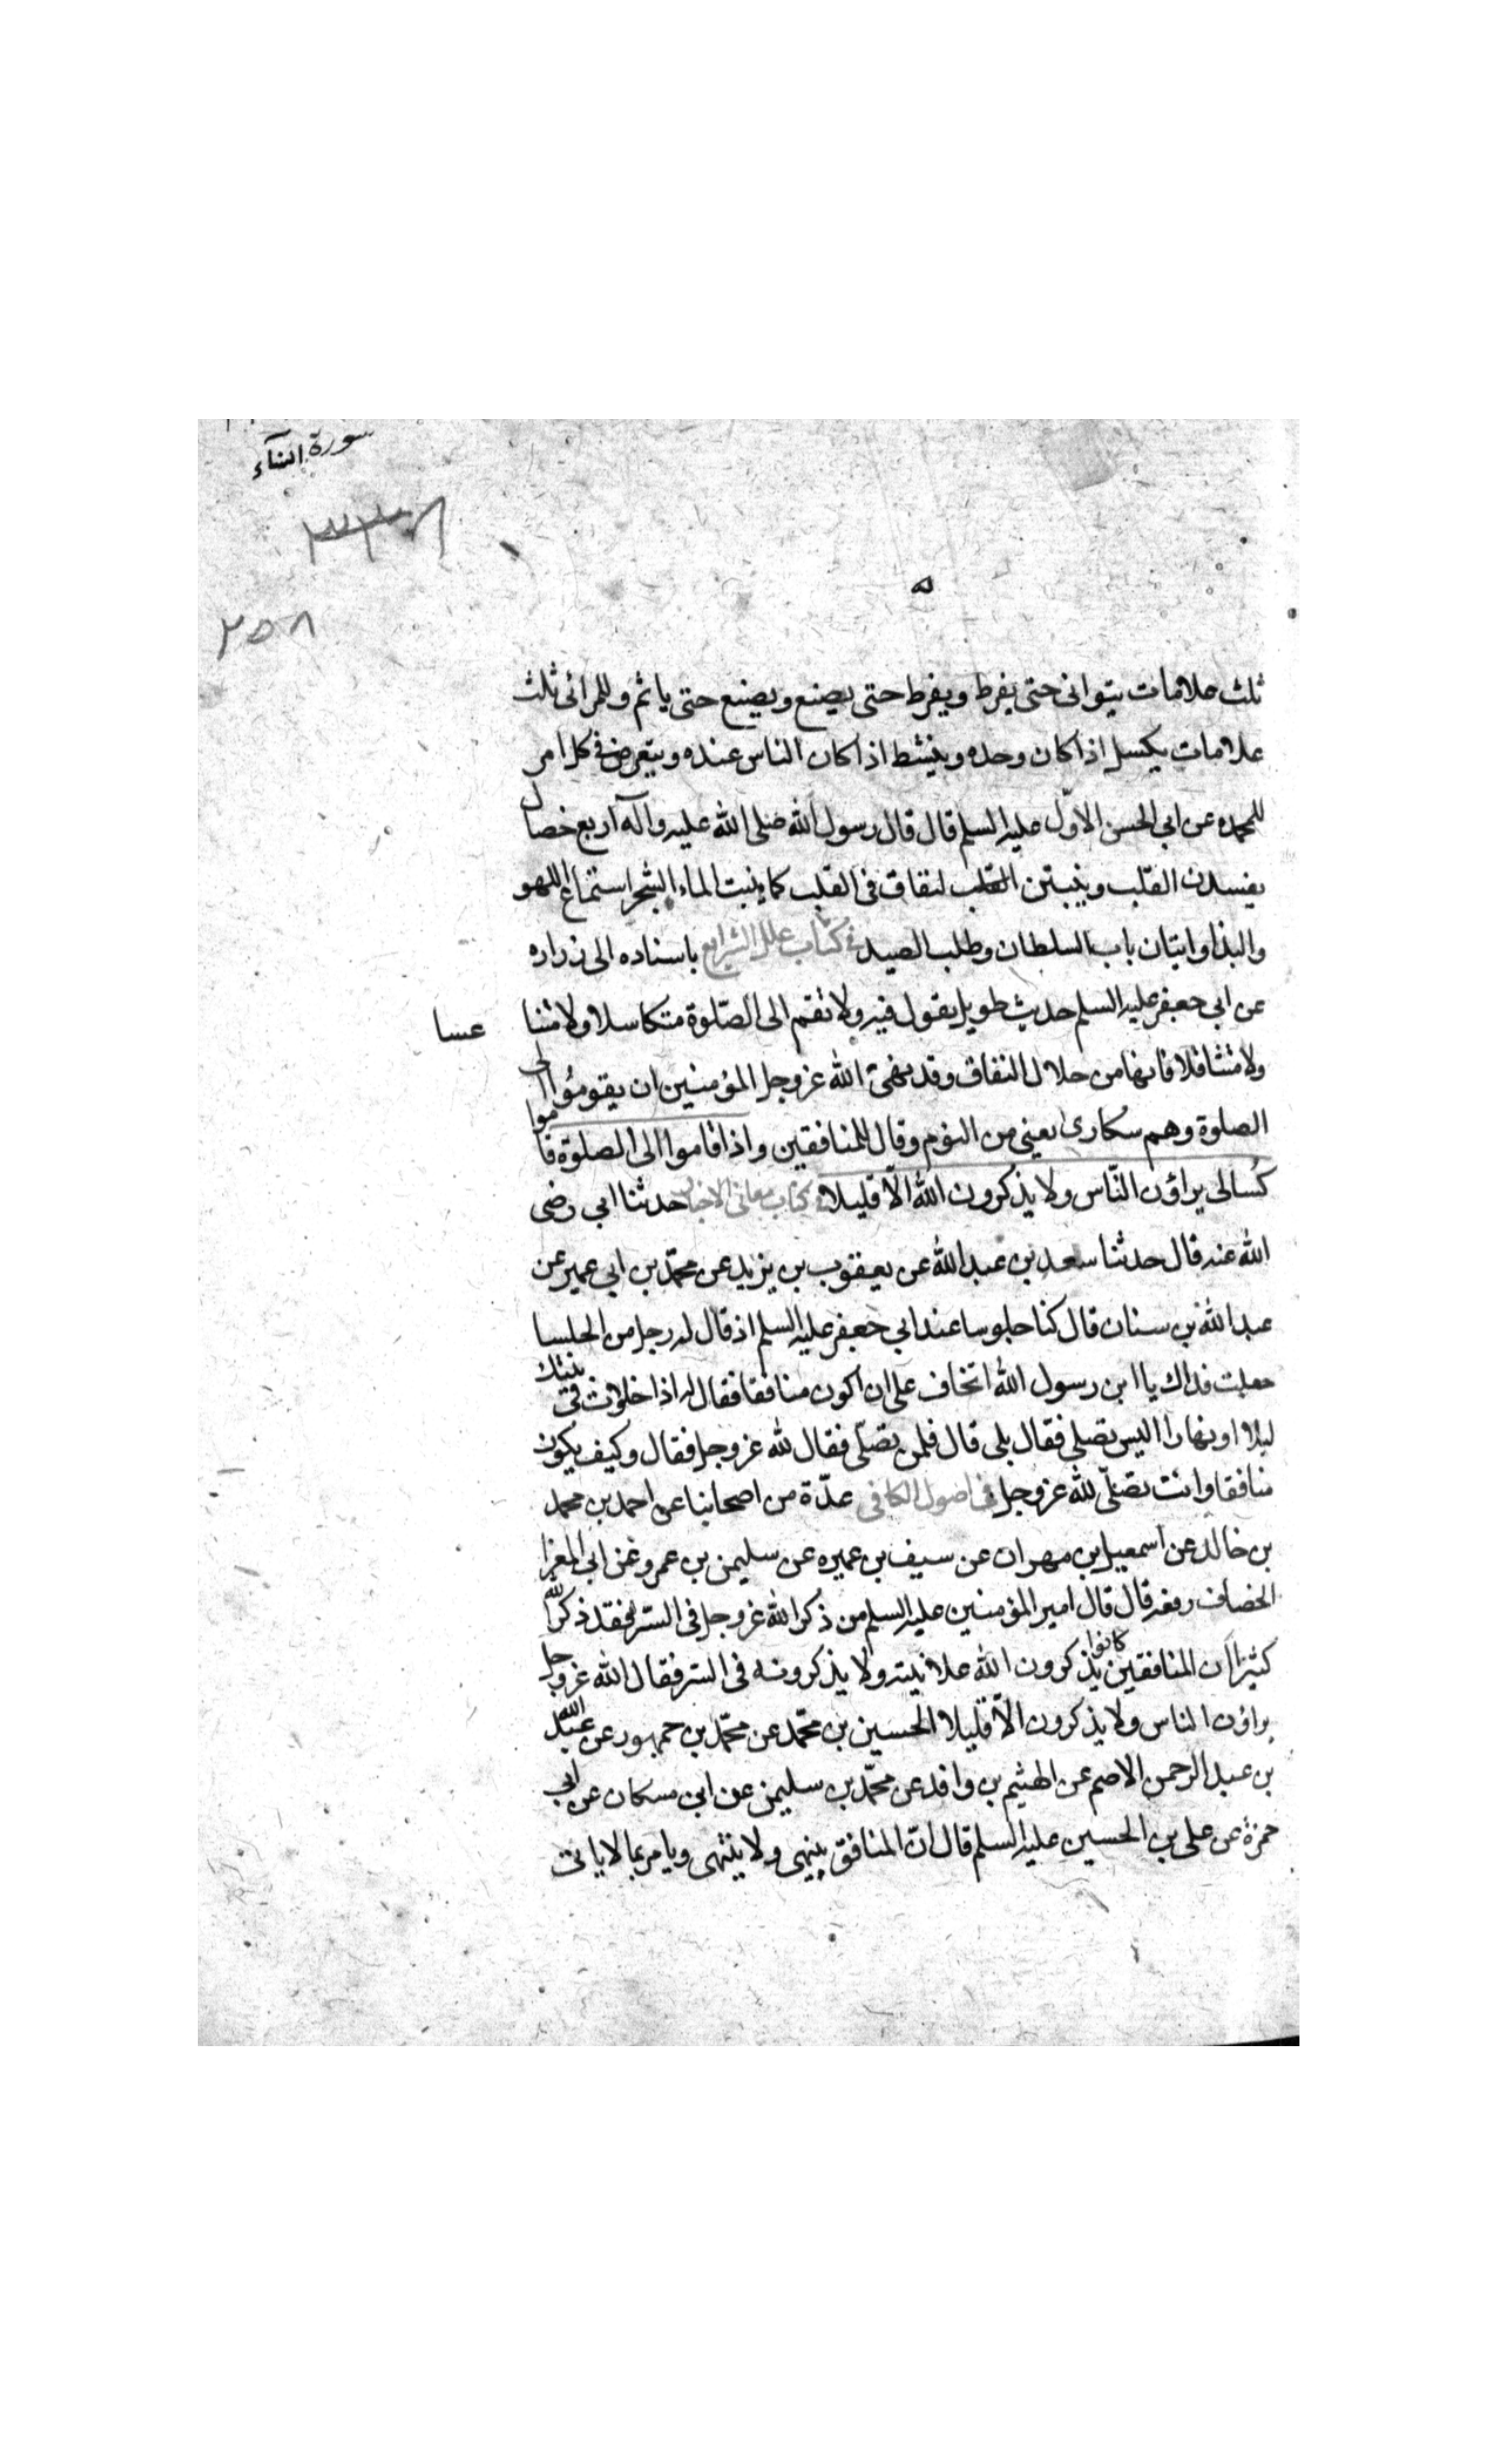 سورة النساء
٣٣٨
٢٥٨
ثلث علامات يتوانى حتى يفرط ويفرط حتى يضيع ويضيع حتى ياثم وللمرائى ثلث
علامات يكسل اذا كان وحده وينشط اذا كان الناس عنده ويتعرض فى كل امر
للمحمدة عن ابى الحسن الاول عليه السلم قال قال رسول الله صلى الله عليه وآله اربع خصال
يفسدن القلب وينبتن النفاق فى القلب كما ينبت الماء الشجر استماع اللهو
والبذا واتيان باب السلطان وطلب الصيد فى كتاب علل الشرايع باسناده الى زراره
عن ابى جعفر عليه السلم حديث طويل يقول فيه ولا تقم الى الصّلوة متكاسلا ولا متنا عسا
ولا متثاقلا فانها من خلال النفاق وقد نهى الله عز وجل المؤمنين ان يقوموا الى
الصلوة وهم سكارى يعنى من النوم وقال للمنافقين واذا قاموا الى الصلوة قاموا
كسالى يراؤن النّاس ولا يذكرون الله الّا قليلا فى كتاب معانى الاخبار حدثنا ابى رضى
الله عنه قال حدثنا سعد بن عبد الله عن يعقوب بن يزيد عن محمّد بن ابى عمير عن
عبد الله بن سنان قال كنا جلوسا عند ابى جعفر عليه السلم اذ قال له رجل من الجلسا
جعلت فداك يا ابن رسول الله اتخاف على ان اكون منافقا فقال له اذا خلوت فى بيتك
ليلا او نهارا اليس تصلى فقال بلى قال فلمن تصلّى فقال لله عز وجل فقال وكيف يكون
منافقا وانت تصلّى لله عز وجل فى اصول الكافى عدّة من اصحابنا عن احمد بن محمد
بن خالد عن اسمعيل بن مهران عن سيف بن عميره عن سليمن بن عمرو عن ابى المعزا
الخصاف رفعه قال قال امير المؤمنين عليه السلم من ذكر الله عز وجل فى السّر فقد ذكر الله
كثيرا ان المنافقين كانوا يذكرون الله علانيته ولا يذكرونه فى السر فقال الله عز وجل
يراؤن الناس ولا يذكرون الّا قليلا الحسين بن محمّد عن محمّد بن جمهور عن عبد الله
بن عبد الرحمن الاصم عن الهيثم بن وافد عن محمّد بن سليمن عن ابن مسكان عن ابى
حمزة عن على بن الحسين عليه السلم قال انّ المنافق ينهى ولا ينتهى ويامر بما لا ياتى